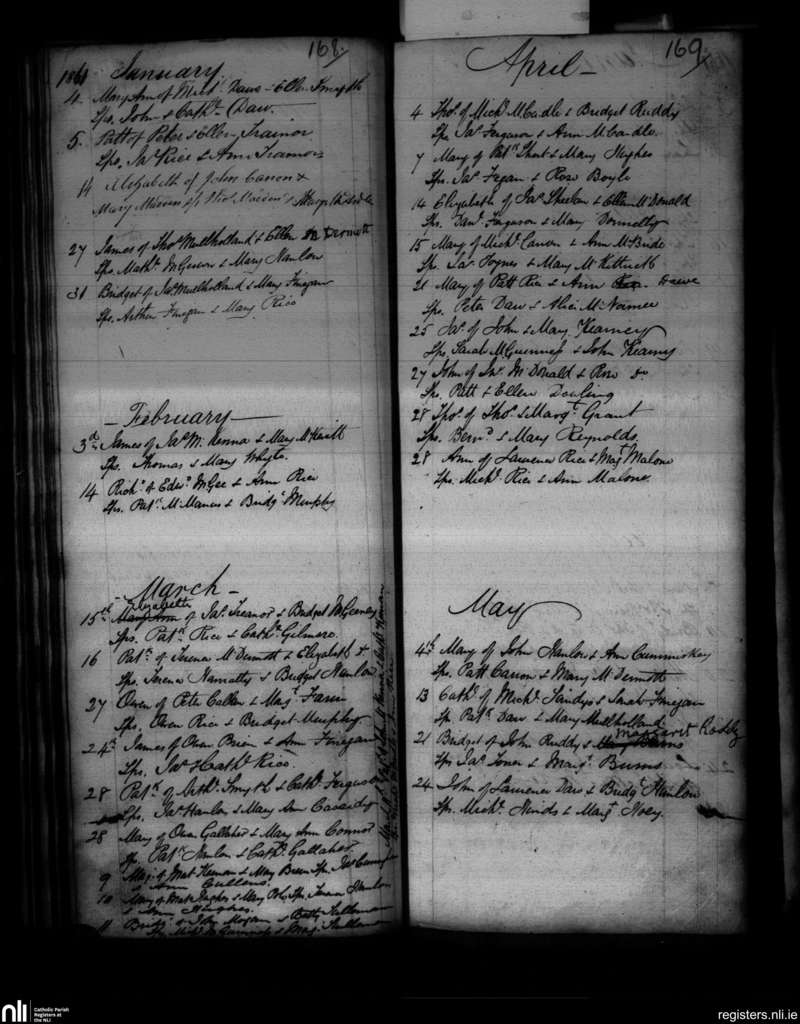 168.
1861 January
4. Mary Ann of Mich.l Daws & Ellen Forsyth
Sps. John & Cath.e Daw.
5. Patt of Peter & Ellen Trainor
Sps. Jas Rice & Ann Trainor
14 Elizabeth of John Caron &
Mary
27 James of Thos Mullholland & Ellen McDermott
Sps. Mathw McGeown & Mary Hanlon
31 Bridget of Jas Mullholland & Mary Finegan
Sps. Arthur Finegan & Mary Rice
- February -
3rd James of Jas McKenna & Mary McKevitt
Sps. Thomas & Mary Whyte.
14 Richd of Edwd McGee & Ann Rice
Sps. Patk McManus & Bridgt Murphy
March -
Elizabeth
15th Mary Ann of Jas Treanor & Bridget McGeeney
Sps. Patk Rice & Cathe Gilmore.
16 Patk of Terence McDermott & Elizabeth &
Sps. Terence & Bridget Hanlon
27 Owen of Peter Callen & Margt
Sps. Owen Rice & Bridget Murphy
24th James of Owen Brien & Ann Finegan
Sps. Jas & Cathe Rice.
28 Patk of Arthr Smyth & Cathe Ferguson
Sps. Jas Hanlon & Mary Ann Cassidy
28 Mary of Owen Gallaher & Mary Ann Connor
Sps. Patk Hanlon & Cathe Gallaher
9 Marg. of Mat Keenan & Mary Breen Sps. Jas
& Ann Cullens.
10 Mary of Hughes & Mary Sps. Hanlon
& Ann Hughes.
11 Bridgt of John Morgan & Betty
Sps. Michl McGuinness & Marg.
169
April -
4 Thos. of Michl McArdle & Bridget Ruddy
Sps. Jas Ferguson & Ann McArdle.
7 Mary of Patk Short & Mary Hughes
Sps. Jas Fegan & Rose Boyle
14 Elizabeth of Jas Sheelan & Ellen McDonald
Sps. Danl Ferguson & Mary Donnelly
15 Mary of Michl Carron & Ann McBride
Sps. Jas Hoynes & Mary McKittrick
21 Mary of Patt Rice & Ann Dawe
Sps. Peter Daw & Alice McNamee
25 Jas of John & Mary Kearney
Sps. Sarah McGuinness & John Kearny
27 John of Jas McDonald & Rose do
Sps. Patt & Ellen Dowling
28 Thos. of Thos. & Margt Grant
Sps. Bernd & Mary Reynolds.
28 Ann of Laurence Rice & Margt Malone
Sps. Michl Rice & Ann Malone.
May
4th Mary of John Hanlon & Ann Cummiskey
Sps. Patt Caron & Mary McDermott
13 Cathe of Michl Sandys & Sarah Finegan
Sps. Patk Daw & Mary Mullholland
Margaret Roddy
21 Bridget of John Ruddy & Mary Burns
Sps Jas Toner & Margt Burns
24 John of Laurence Daw & Bridgt Hanlon
Sps. Michl Hinds & Margt Hoey.
nli
Catholic Parish
Registers at
the NLI
registers.nli.ie